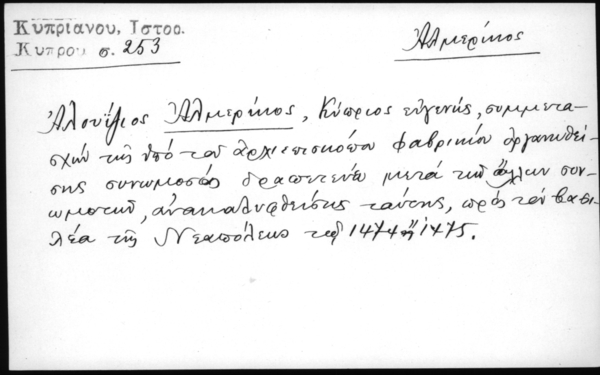 Κυπριανου, Ιστορ.
Κυπρου σ. 253
Ἀλμερίκος
Ἀλουΐζιος Ἀλμερίκος, Κύπριος εὐγενής, συμμετα-
σχὼν τῆς ὑπὸ τοῦ ἀρχιεπισκόπου Φαβρικίου ὀργανωθεί-
σης συνωμοσίας δραπετεύει μετὰ τῶν ἄλλων συν-
ωμοτῶν, ἀνακαλυφθείσης ταύτης, πρὸς τὸν βασι-
λέα τῆς Νεαπόλεως τῷ 1474 ἢ 1475.